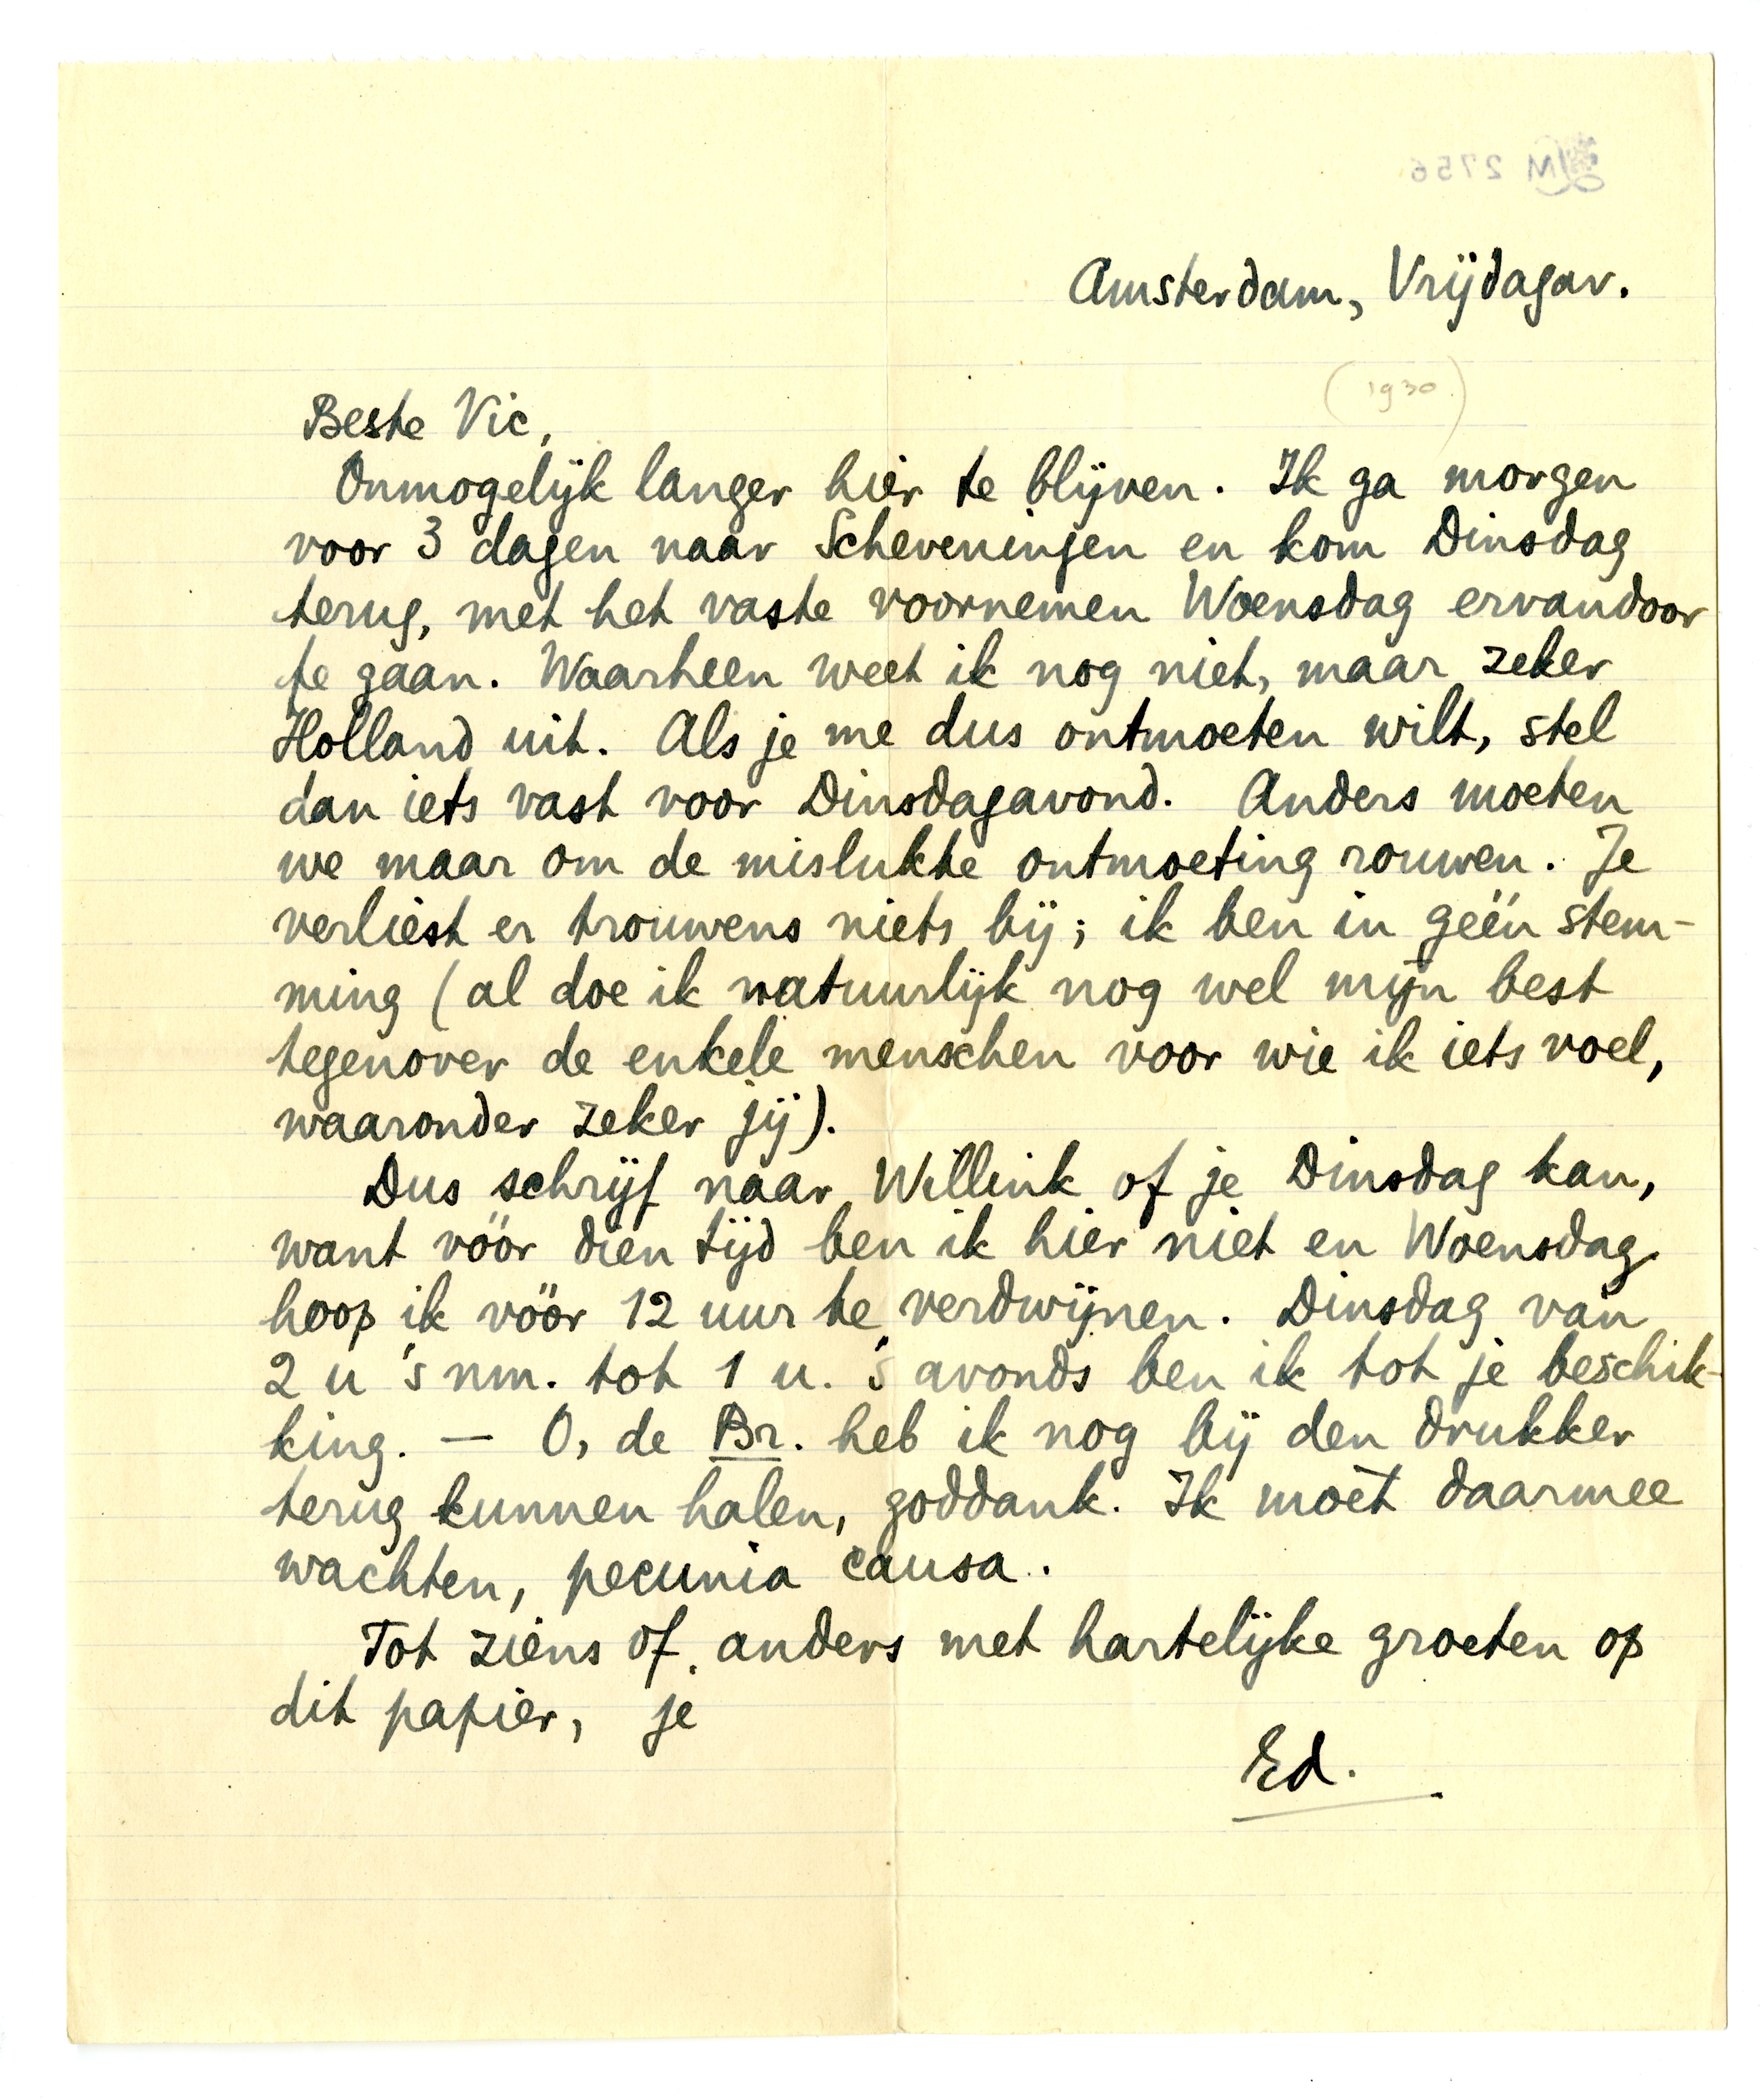 LM 2756
Amsterdam, Vrijdagav.
(1930)
Beste Vic,
Onmogelijk langer hier te blijven. Ik ga morgen
voor 3 dagen naar Scheveningen en kom Dinsdag
terug, met het vaste voornemen Woensdag ervandoor
te gaan. Waarheen weet ik nog niet, maar zeker
Holland uit. Als je me dus ontmoeten wilt, stel
dan iets vast voor Dinsdagavond. Anders moeten
we maar om de mislukte ontmoeting rouwen. Je
verliest er trouwens niets bij; ik ben in géén stem-
ming (al doe ik natuurlijk nog wel mijn best
tegenover de enkele menschen voor wie ik iets voel,
waaronder zeker jij).
Dus schrijf naar Willink of je Dinsdag kan,
want vóór dien tijd ben ik hier niet en Woensdag
hoop ik vóór 12 uur te verdwijnen. Dinsdag van
2 u 's nm. tot 1 u. 's avonds ben ik tot je beschik-
king. — O, de Br. heb ik nog bij den drukker
terug kunnen halen, goddank. Ik moèt daarmee
wachten, pecunia causa.
Tot ziens of anders met hartelijke groeten op
dit papier, je
Ed.